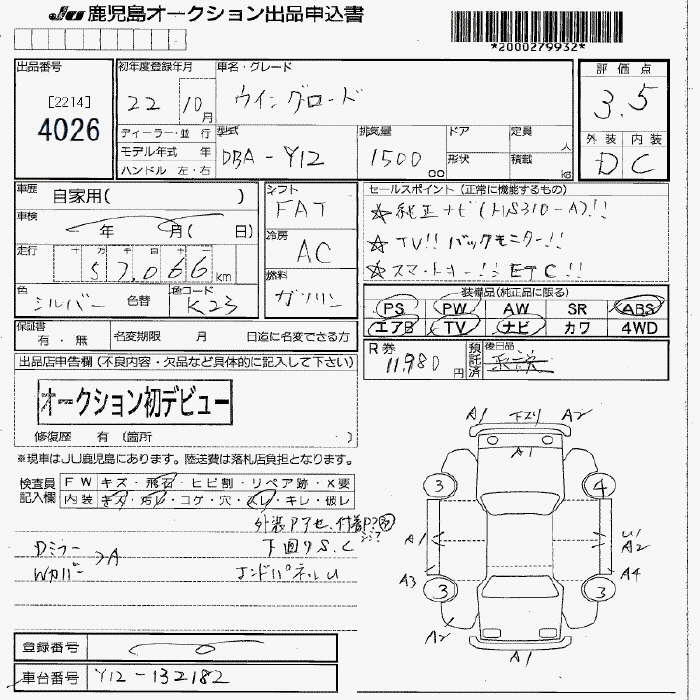 JU 鹿児島オークション出品申込書
*2000279932*
出品番号
[2214]
4026
初年度登録年月
22 10月
車名・グレード
ウイングロード
評価点
3.5
外装 内装
D C
ディーラー・並行
モデル年式 年
ハンドル 左・右
型式
DBA-Y12
排気量
1500 cc
ドア
形状
定員 人
積載 kg
車歴 自家用( )
車検 年 月( 日)
走行 57,066 km
色 シルバー 色替 色コード K23
シフト
FAT
冷房
AC
燃料
ガソリン
セールスポイント (正常に機能するもの)
☆ 純正ナビ(HS310-A)!!
☆ TV!! バックモニター!!
☆ スマートキー!! ETC!!
装備品(純正品に限る)
PS PW AW SR ABS
エアB TV ナビ カワ 4WD
保証書 有・無
名変期限 月 日迄に名変できる方
R券 11,980 円
預託済
後日品
出品店申告欄 (不良内容・欠品など具体的に記入して下さい)
オークション初デビュー
修復歴 有 (箇所 )
※現車はJU鹿児島にあります。陸送費は落札店負担となります。
検査員記入欄
FW キズ・飛石・ヒビ割・リペア跡・X要
内装 キズ・汚レ・コゲ・穴・スレ・キレ・破レ
外装Pアセ、付着P?
Dミラー
Wカバー >A
下回りS.C
エンドパネルU
A1 下スリ A2
A1
3 4
A1 U1
A2
A3 A4
3 3
A2
A1
登録番号
車台番号 Y12-132182